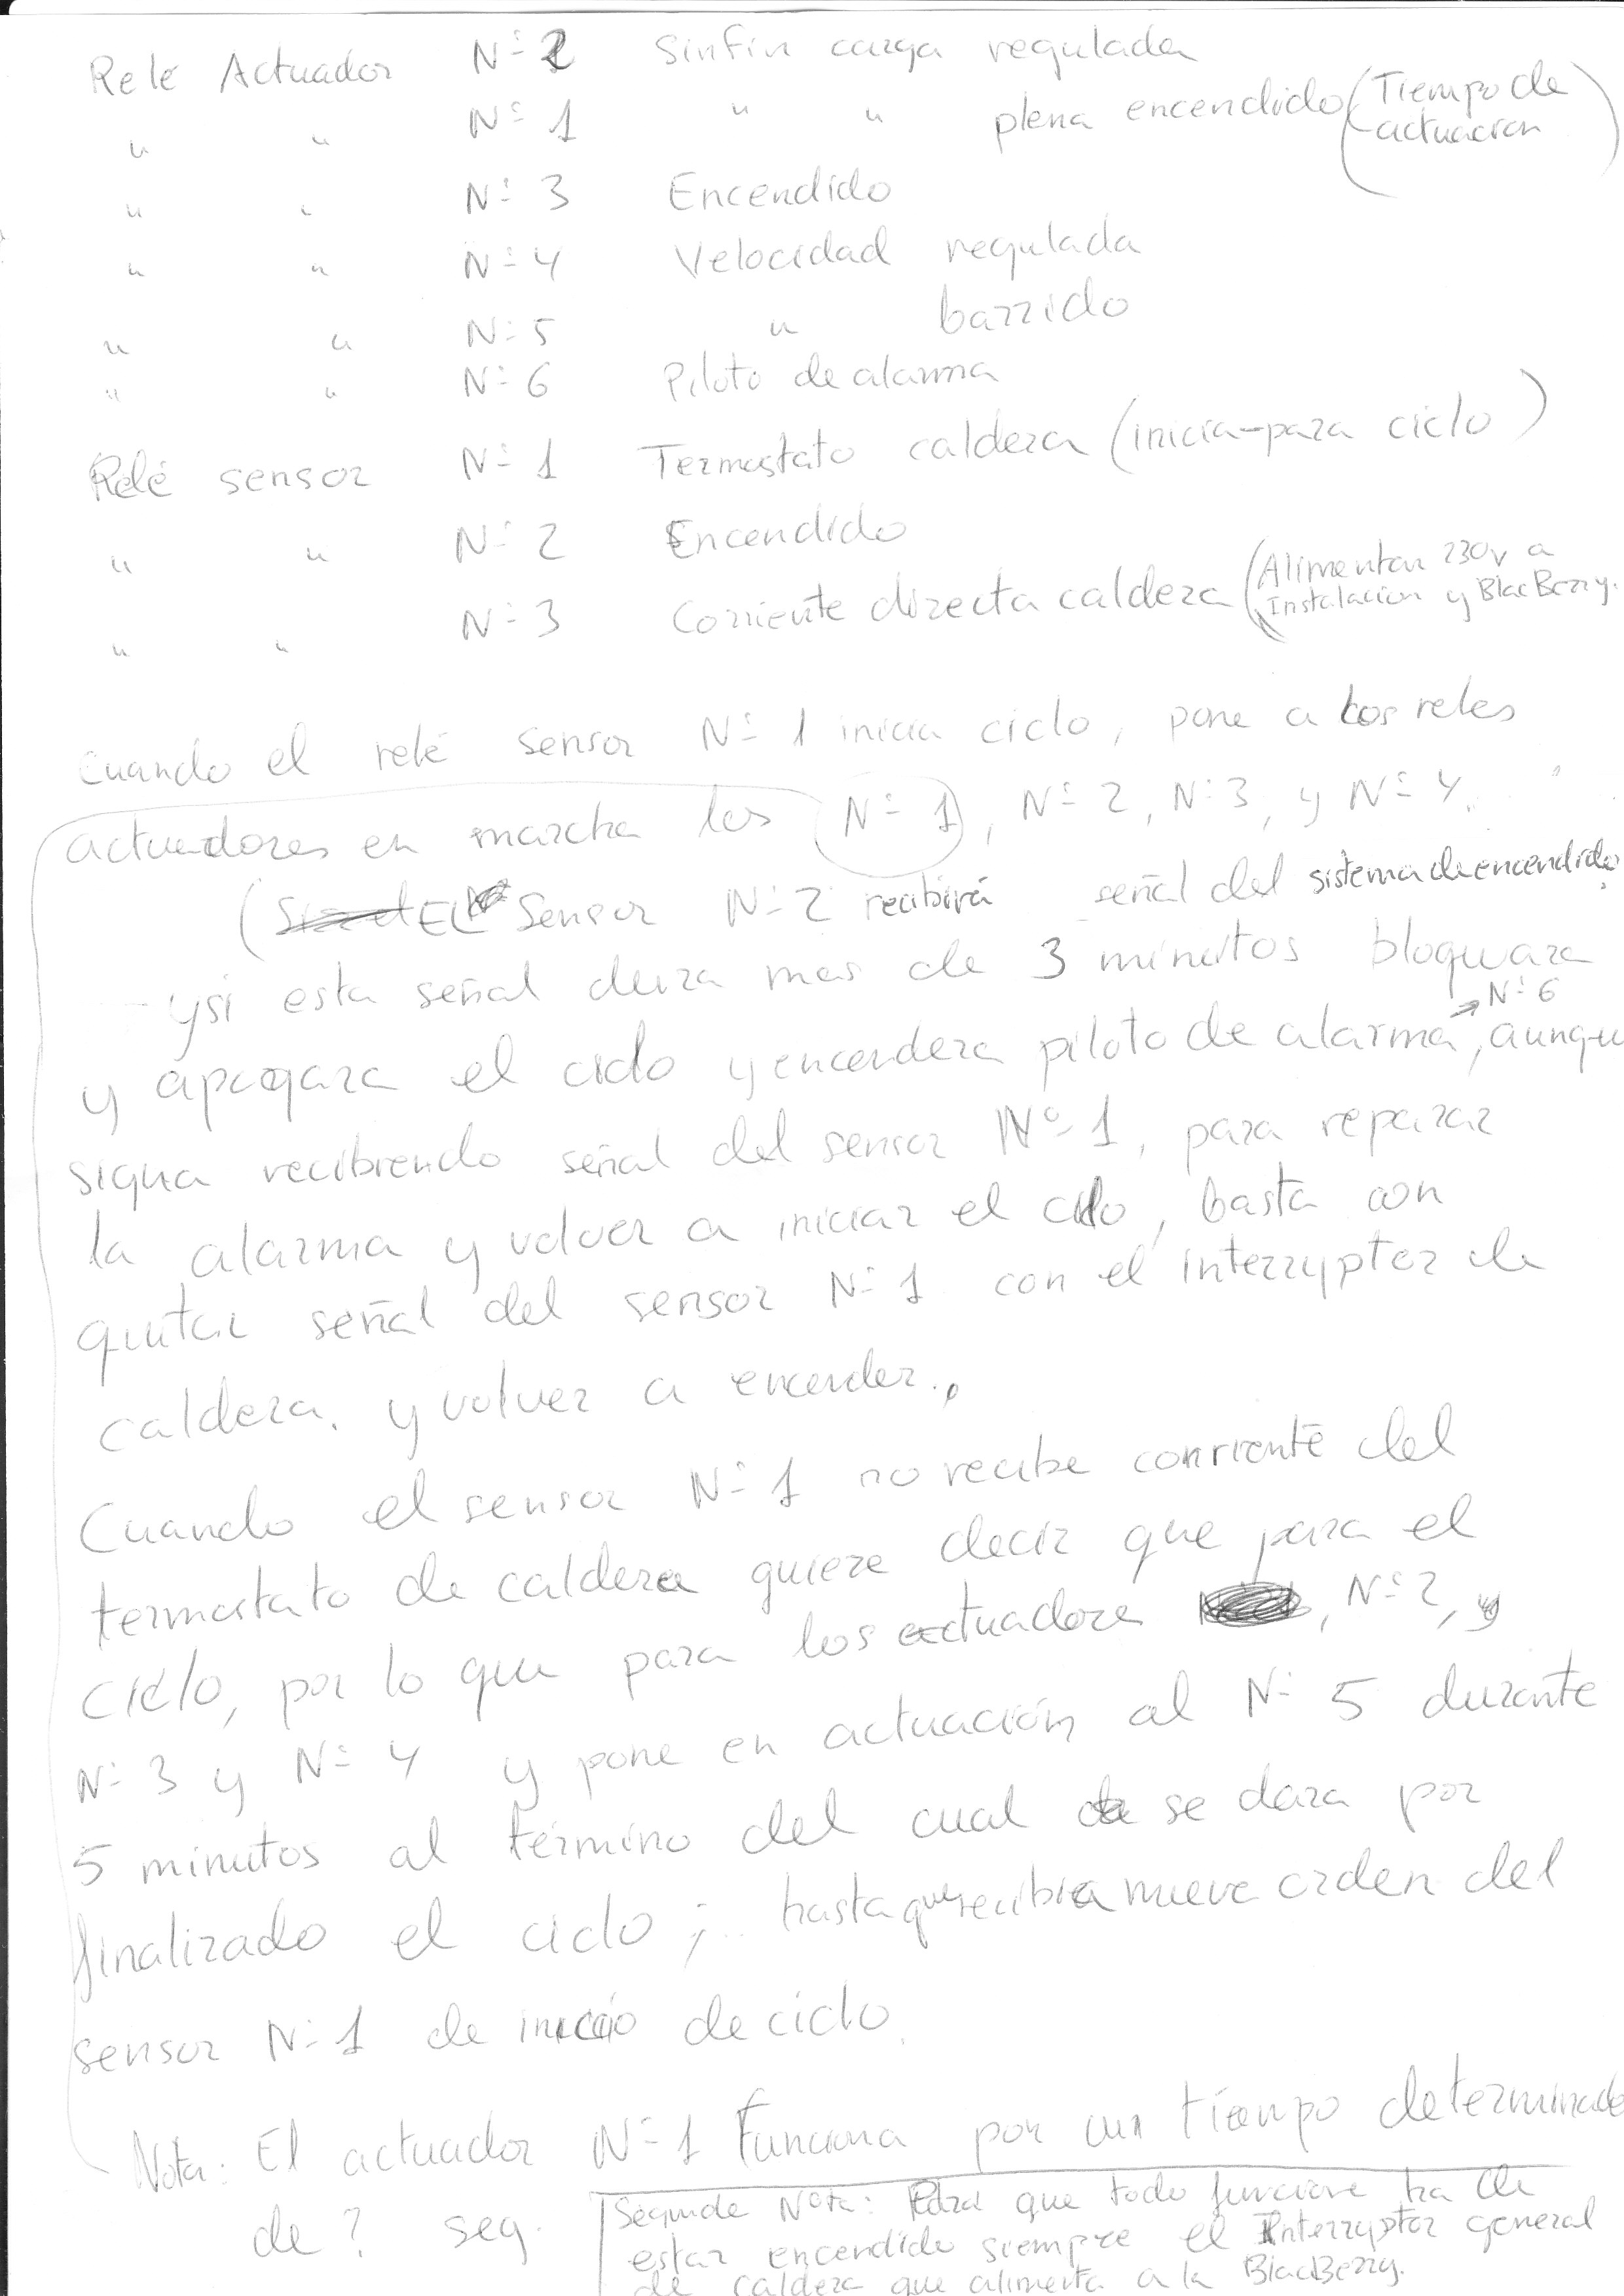 Relé Actuador Nº 2 Sinfin carga regulada
" " Nº 1 " " plena encendido (Tiempo de
actuacion)
" " Nº 3 Encendido
" " Nº 4 Velocidad regulada
" " Nº 5 " barrido
" " Nº 6 Piloto de alarma
Relé sensor Nº 1 Termostato caldera (inicia-para ciclo)
" " Nº 2 Encendido
" " Nº 3 Corriente directa caldera (Alimentar 230v a
Instalacion y BlacBerry.
Cuando el relé sensor Nº 1 inicia ciclo, pone a los reles
actuadores en marcha los Nº 1, Nº 2, Nº 3, y Nº 4.
(El Sensor Nº 2 recibirá señal del sistema de encendido
y si esta señal dura mas de 3 minutos bloquara
→ Nº 6
y apagara el ciclo y encendera piloto de alarma, aunqu
sigua recibiendo señal del sensor Nº 1, para reparar
la alarma y volver a iniciar el ciclo, basta con
quitar señal del sensor Nº 1 con el interruptor de
caldera. y volver a encender.
Cuando el sensor Nº 1 no recibe corriente del
termostato de caldera quiere decir que para el
ciclo, por lo que para los actuadore , Nº 2, y
Nº 3 y Nº 4 y pone en actuación al Nº 5 durante
5 minutos al término del cual se dara por
finalizado el ciclo; hasta que recibia nueve orden del
sensor Nº 1 de inicio de ciclo.
Nota: El actuador Nº 1 Funciona por un tiempo determinado
de ? seg.
Segunde Nota: Para que todo funcione ha de
estar encendido siempre el Interruptor general
de caldera que alimenta a la BlacBerry.